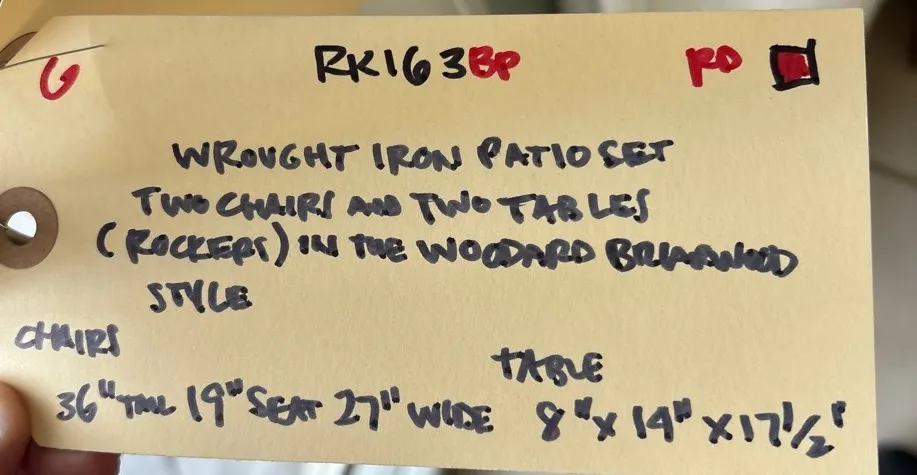 G RK163BP RD
WROUGHT IRON PATIO SET
TWO CHAIRS AND TWO TABLES
(ROCKERS) IN THE WOODARD BRIARWOOD
STYLE
CHAIRS
TABLE
36" TALL 19" SEAT 27" WIDE 8" X 14" X 17 1/2'